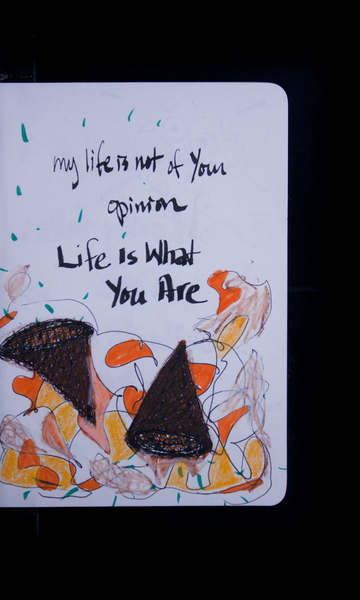 my life is not of your
opinion
Life is What
You Are